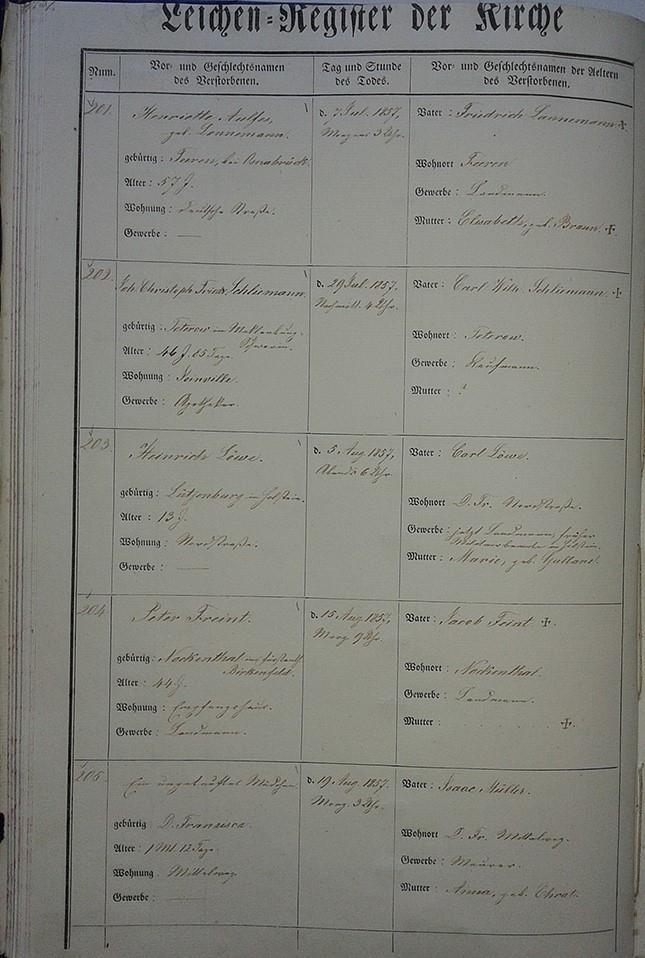 Leichen-Register der Kirche
Num.
Vor- und Geschlechtsnamen
des Verstorbenen.
Tag und Stunde
des Todes.
Vor- und Geschlechtsnamen der Aeltern
des Verstorbenen.
201.
Henriette
geb. Lonnemann.
gebürtig: Feeren, bei Osnabrück.
Alter: 57 J.
Wohnung: deutsche Straße.
Gewerbe: —
d. 7 Jul. 1857,
Morgens 3 Uhr.
Vater: Friedrich Lannemann ✠
Wohnort Feeren
Gewerbe: Landmann.
Mutter: Elisabeth, geb. Braun. ✠
202.
Joh. Christoph Friedr. Schliemann.
gebürtig: Teterow in Meklenburg-
Schwerin.
Alter: 46 J. 85 Tage.
Wohnung: Joinville.
Gewerbe: Apotheker.
d. 29 Jul. 1857.
Nachmitt. 4 Uhr.
Vater: Carl Wilh. Schliemann ✠
Wohnort: Teterow.
Gewerbe: Kaufmann.
Mutter: ?
203
Heinrich Löwe.
gebürtig: Lütjenburg in Holstein.
Alter: 13 J.
Wohnung: Nordstraße.
Gewerbe: —
d. 5 Aug. 1857,
Abends 6 Uhr.
Vater: Carl Löwe.
Wohnort D. Fr. Nordstraße.
Gewerbe: jetzt Landmann, früher
in Holstein.
Mutter: Marie, geb.
204
Peter Freint.
gebürtig: Nockenthal im Fürstenth.
Birkenfeld.
Alter: 44 J.
Wohnung: Empfangshaus.
Gewerbe: Landmann.
d. 15 Aug. 1857,
Morg. 9 Uhr.
Vater: Jacob Feint ✠
Wohnort: Nockenthal.
Gewerbe: Landmann.
Mutter: ✠
205
Ein ungetauftes Mädchen.
gebürtig: D. Francisca.
Alter: 1 Mt. 12 Tage.
Wohnung: Mittelweg
Gewerbe: —
d. 19 Aug. 1857.
Morg. 3 Uhr.
Vater: Isaac Müller.
Wohnort D. Fr. Mittelweg.
Gewerbe: Maurer.
Mutter: Anna, geb.